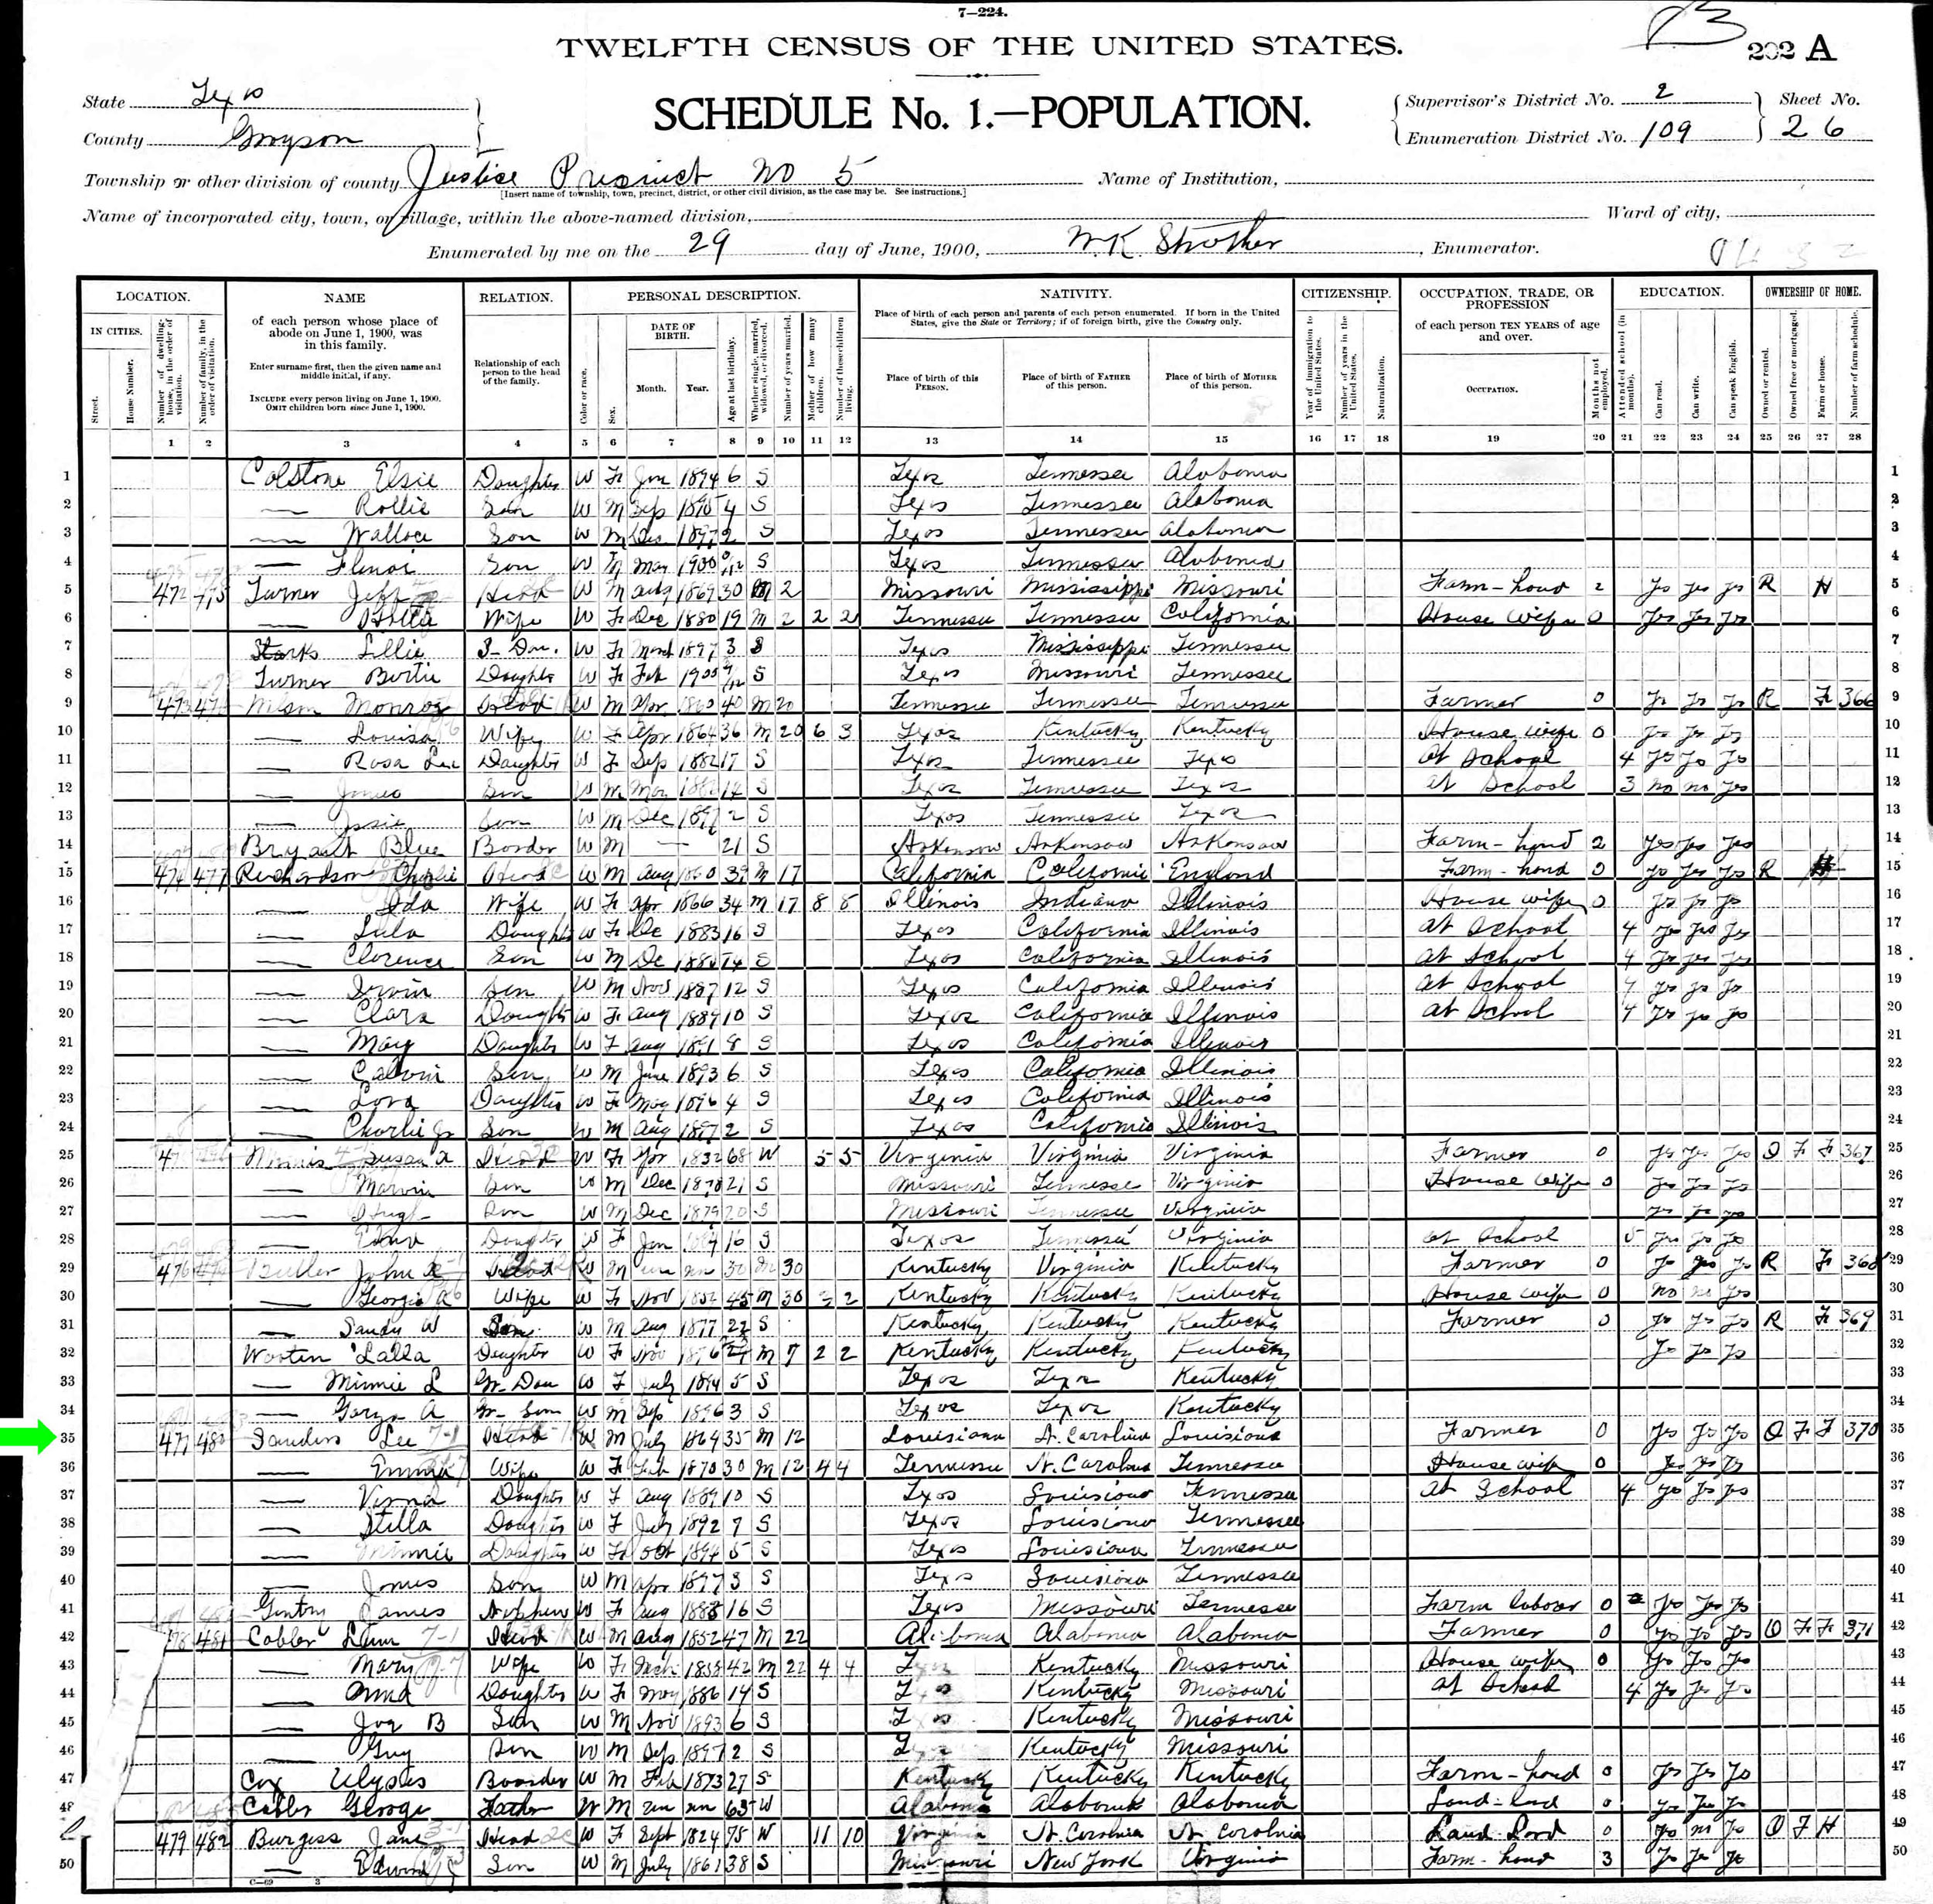 7—224.
TWELFTH CENSUS OF THE UNITED STATES.
B 202 A
State Texas
SCHEDULE No. 1.—POPULATION.
County Grayson
Supervisor's District No. 2
Enumeration District No. 109
Sheet No. 26
Township or other division of county Justice Precinct No 5 Name of Institution,
[Insert name of township, town, precinct, district, or other civil division, as the case may be. See instructions.]
Name of incorporated city, town, or village, within the above-named division, Ward of city,
Enumerated by me on the 29 day of June, 1900, W.K. Strother, Enumerator.
LOCATION. NAME RELATION. PERSONAL DESCRIPTION. NATIVITY. CITIZENSHIP. OCCUPATION, TRADE, OR PROFESSION EDUCATION. OWNERSHIP OF HOME.
IN CITIES.
Street.
House Number.
Number of dwelling-house, in the order of visitation.
Number of family, in the order of visitation.
of each person whose place of abode on June 1, 1900, was in this family.
Enter surname first, then the given name and middle initial, if any.
INCLUDE every person living on June 1, 1900.
OMIT children born since June 1, 1900.
Relationship of each person to the head of the family.
Color or race.
Sex.
DATE OF BIRTH.
Month. Year.
Age at last birthday.
Whether single, married, widowed, or divorced.
Number of years married.
Mother of how many children.
Number of these children living.
Place of birth of each person and parents of each person enumerated. If born in the United States, give the State or Territory; if of foreign birth, give the Country only.
Place of birth of this PERSON.
Place of birth of FATHER of this person.
Place of birth of MOTHER of this person.
Year of immigration to the United States.
Number of years in the United States.
Naturalization.
of each person TEN YEARS of age and over.
OCCUPATION.
Months not employed.
Attended school (in months).
Can read.
Can write.
Can speak English.
Owned or rented.
Owned free or mortgaged.
Farm or house.
Number of farm schedule.
1 2 3 4 5 6 7 8 9 10 11 12 13 14 15 16 17 18 19 20 21 22 23 24 25 26 27 28
1 Colstone Elsie Daughter W F Jan 1894 6 S Texas Tennessee Alabama 1
2 — Rollie Son W M Sep 1895 4 S Texas Tennessee Alabama 2
3 — Wallace Son W M Dec 1897 2 S Texas Tennessee Alabama 3
4 — Son W May 1900 S Texas Tennessee Alabama 4
5 472 475 Turner Jeff Head W M Aug 1869 30 M 2 Missouri Mississippi Missouri Farm-hand 2 Yes Yes Yes R H 5
6 — Wife W F Dec 1880 19 M 2 2 2 Tennessee Tennessee California House wife 0 Yes Yes Yes 6
7 Starks Lillie S-Dau. W F March 1897 3 S Texas Mississippi Tennessee 7
8 Turner Bertie Daughter W F Feb 1900 S Texas Missouri Tennessee 8
9 473 Wilson Monroe Head W M Apr 1860 40 M 20 Tennessee Tennessee Tennessee Farmer 0 Yes Yes Yes R F 366 9
10 — Louisa Wife W F Apr 1864 36 M 20 6 3 Texas Kentucky Kentucky House wife 0 Yes Yes Yes 10
11 — Rosa Lee Daughter W F Sep 1882 17 S Texas Tennessee Texas at School 4 Yes Yes Yes 11
12 — James Son W M Mar 14 S Texas Tennessee Texas at School 3 no no Yes 12
13 — Jessie Son W M Dec 1897 2 S Texas Tennessee Texas 13
14 Bryant Blue Border W M — 21 S Arkansaw Arkansaw Arkansaw Farm-hand 2 Yes Yes Yes 14
15 474 477 Richardson Charlie Head W M Aug 1860 39 M 17 California California England Farm-hand 0 Yes Yes Yes R H 15
16 — Ida Wife W F Apr 1866 34 M 17 8 8 Illinois Indiana Illinois House wife 0 Yes Yes Yes 16
17 — Lula Daughter W F Dec 1883 16 S Texas California Illinois at School 4 Yes Yes Yes 17
18 — Clorence Son W M Dec 1885 14 S Texas California Illinois at School 4 Yes Yes Yes 18
19 — Irvin Son W M Nov 1887 12 S Texas California Illinois at School 4 Yes Yes Yes 19
20 — Clara Daughter W F Aug 1889 10 S Texas California Illinois at School 4 Yes Yes Yes 20
21 — May Daughter W F Aug 1891 8 S Texas California Illinois 21
22 — Calvin Son W M June 1893 6 S Texas California Illinois 22
23 — Lora Daughter W F May 1896 4 S Texas California Illinois 23
24 — Charlie Jr Son W M Aug 1897 2 S Texas California Illinois 24
25 Susan A Head W F Apr 1832 68 W 5 5 Virginia Virginia Virginia Farmer 0 Yes Yes Yes O F F 367 25
26 — Marvin Son W M Dec 1878 21 S Missouri Tennesse Virginia House wife 0 Yes Yes Yes 26
27 — Hugh Son W M Dec 1879 20 S Missouri Tennessee Virginia Yes Yes Yes 27
28 — Daughter W F Jan 16 S Texas Tennessee Virginia at School 5 Yes Yes Yes 28
29 476 Butler John Head W M un un M 30 Kentucky Virginia Kentucky Farmer 0 Yes Yes Yes R F 368 29
30 — Georgia A Wife W F Nov 45 M 30 2 Kentucky Kentucky Kentucky House wife 0 no no Yes 30
31 — Sandy W Son W M Aug 1877 22 S Kentucky Kentucky Kentucky Farmer 0 Yes Yes Yes R F 369 31
32 Wooten Lalla Daughter W F Nov 1876 M 7 2 2 Kentucky Kentucky Kentucky Yes Yes Yes 32
33 — Minnie L Gr-Dau W F July 1894 5 S Texas Texas Kentucky 33
34 — A Gr-Son W M Sep 1896 3 S Texas Texas Kentucky 34
35 477 480 Sanders Lee 7-1 Head W M July 1864 35 M 12 Louisiana N. Carolina Louisiana Farmer 0 Yes Yes Yes O F F 370 35
36 — Emma Wife W F Feb 1870 30 M 12 4 4 Tennessee N. Carolina Tennessee House wife 0 Yes Yes Yes 36
37 — Verna Daughter W F Aug 1889 10 S Texas Louisiana Tennessee at School 4 Yes Yes Yes 37
38 — Stella Daughter W F July 1892 7 S Texas Louisiana Tennessee 38
39 — Minnie Daughter W F Oct 1894 5 S Texas Louisiana Tennessee 39
40 — James Son W M Apr 1897 3 S Texas Louisiana Tennessee 40
41 Gentry James Nephew W F Aug 1883 16 S Texas Missouri Tennesse Farm labour 0 Yes Yes Yes 41
42 478 481 Cobler 7-1 Head W M Aug 1852 47 M 22 Alabama Alabama Alabama Farmer 0 Yes Yes Yes O F F 371 42
43 — Mary Wife W F Mch 1858 42 M 22 4 4 Texas Kentucky Missouri House wife 0 Yes Yes Yes 43
44 — Anna Daughter W F May 1886 14 S Texas Kentucky Missouri at School 4 Yes Yes Yes 44
45 — Joe B Son W M Nov 1893 6 S Texas Kentucky Missouri 45
46 — Guy Son W M Sep 1897 2 S Texas Kentucky Missouri 46
47 Cox Ulyses Boarder W M Feb 1873 27 S Kentucky Kentucky Kentucky Farm-hand 0 Yes Yes Yes 47
48 Cobler George Father W M un un 63 W Alabama Alabama Alabama Land-lord 0 Yes Yes Yes 48
49 479 482 Burgess Jane Head W F Sept 1824 75 W 11 10 Virginia N. Carolnia N. Carolnia Land Lord 0 Yes no Yes O F H 49
50 — Edwin Son W M July 1861 38 S Missouri New York Virginia Farm-hand 3 Yes Yes Yes 50